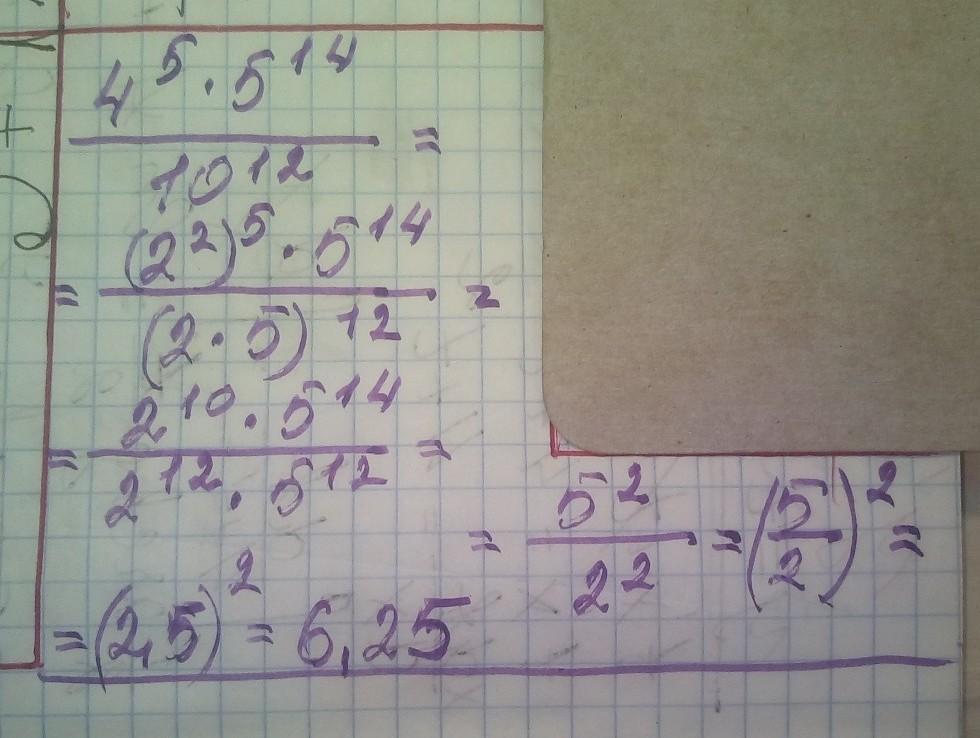 4⁵ · 5¹⁴
10¹² =
= (2²)⁵ · 5¹⁴
(2 · 5)¹² =
= 2¹⁰ · 5¹⁴
2¹² · 5¹² =
= 5²/2² = (5/2)² =
= (2,5)² = 6,25